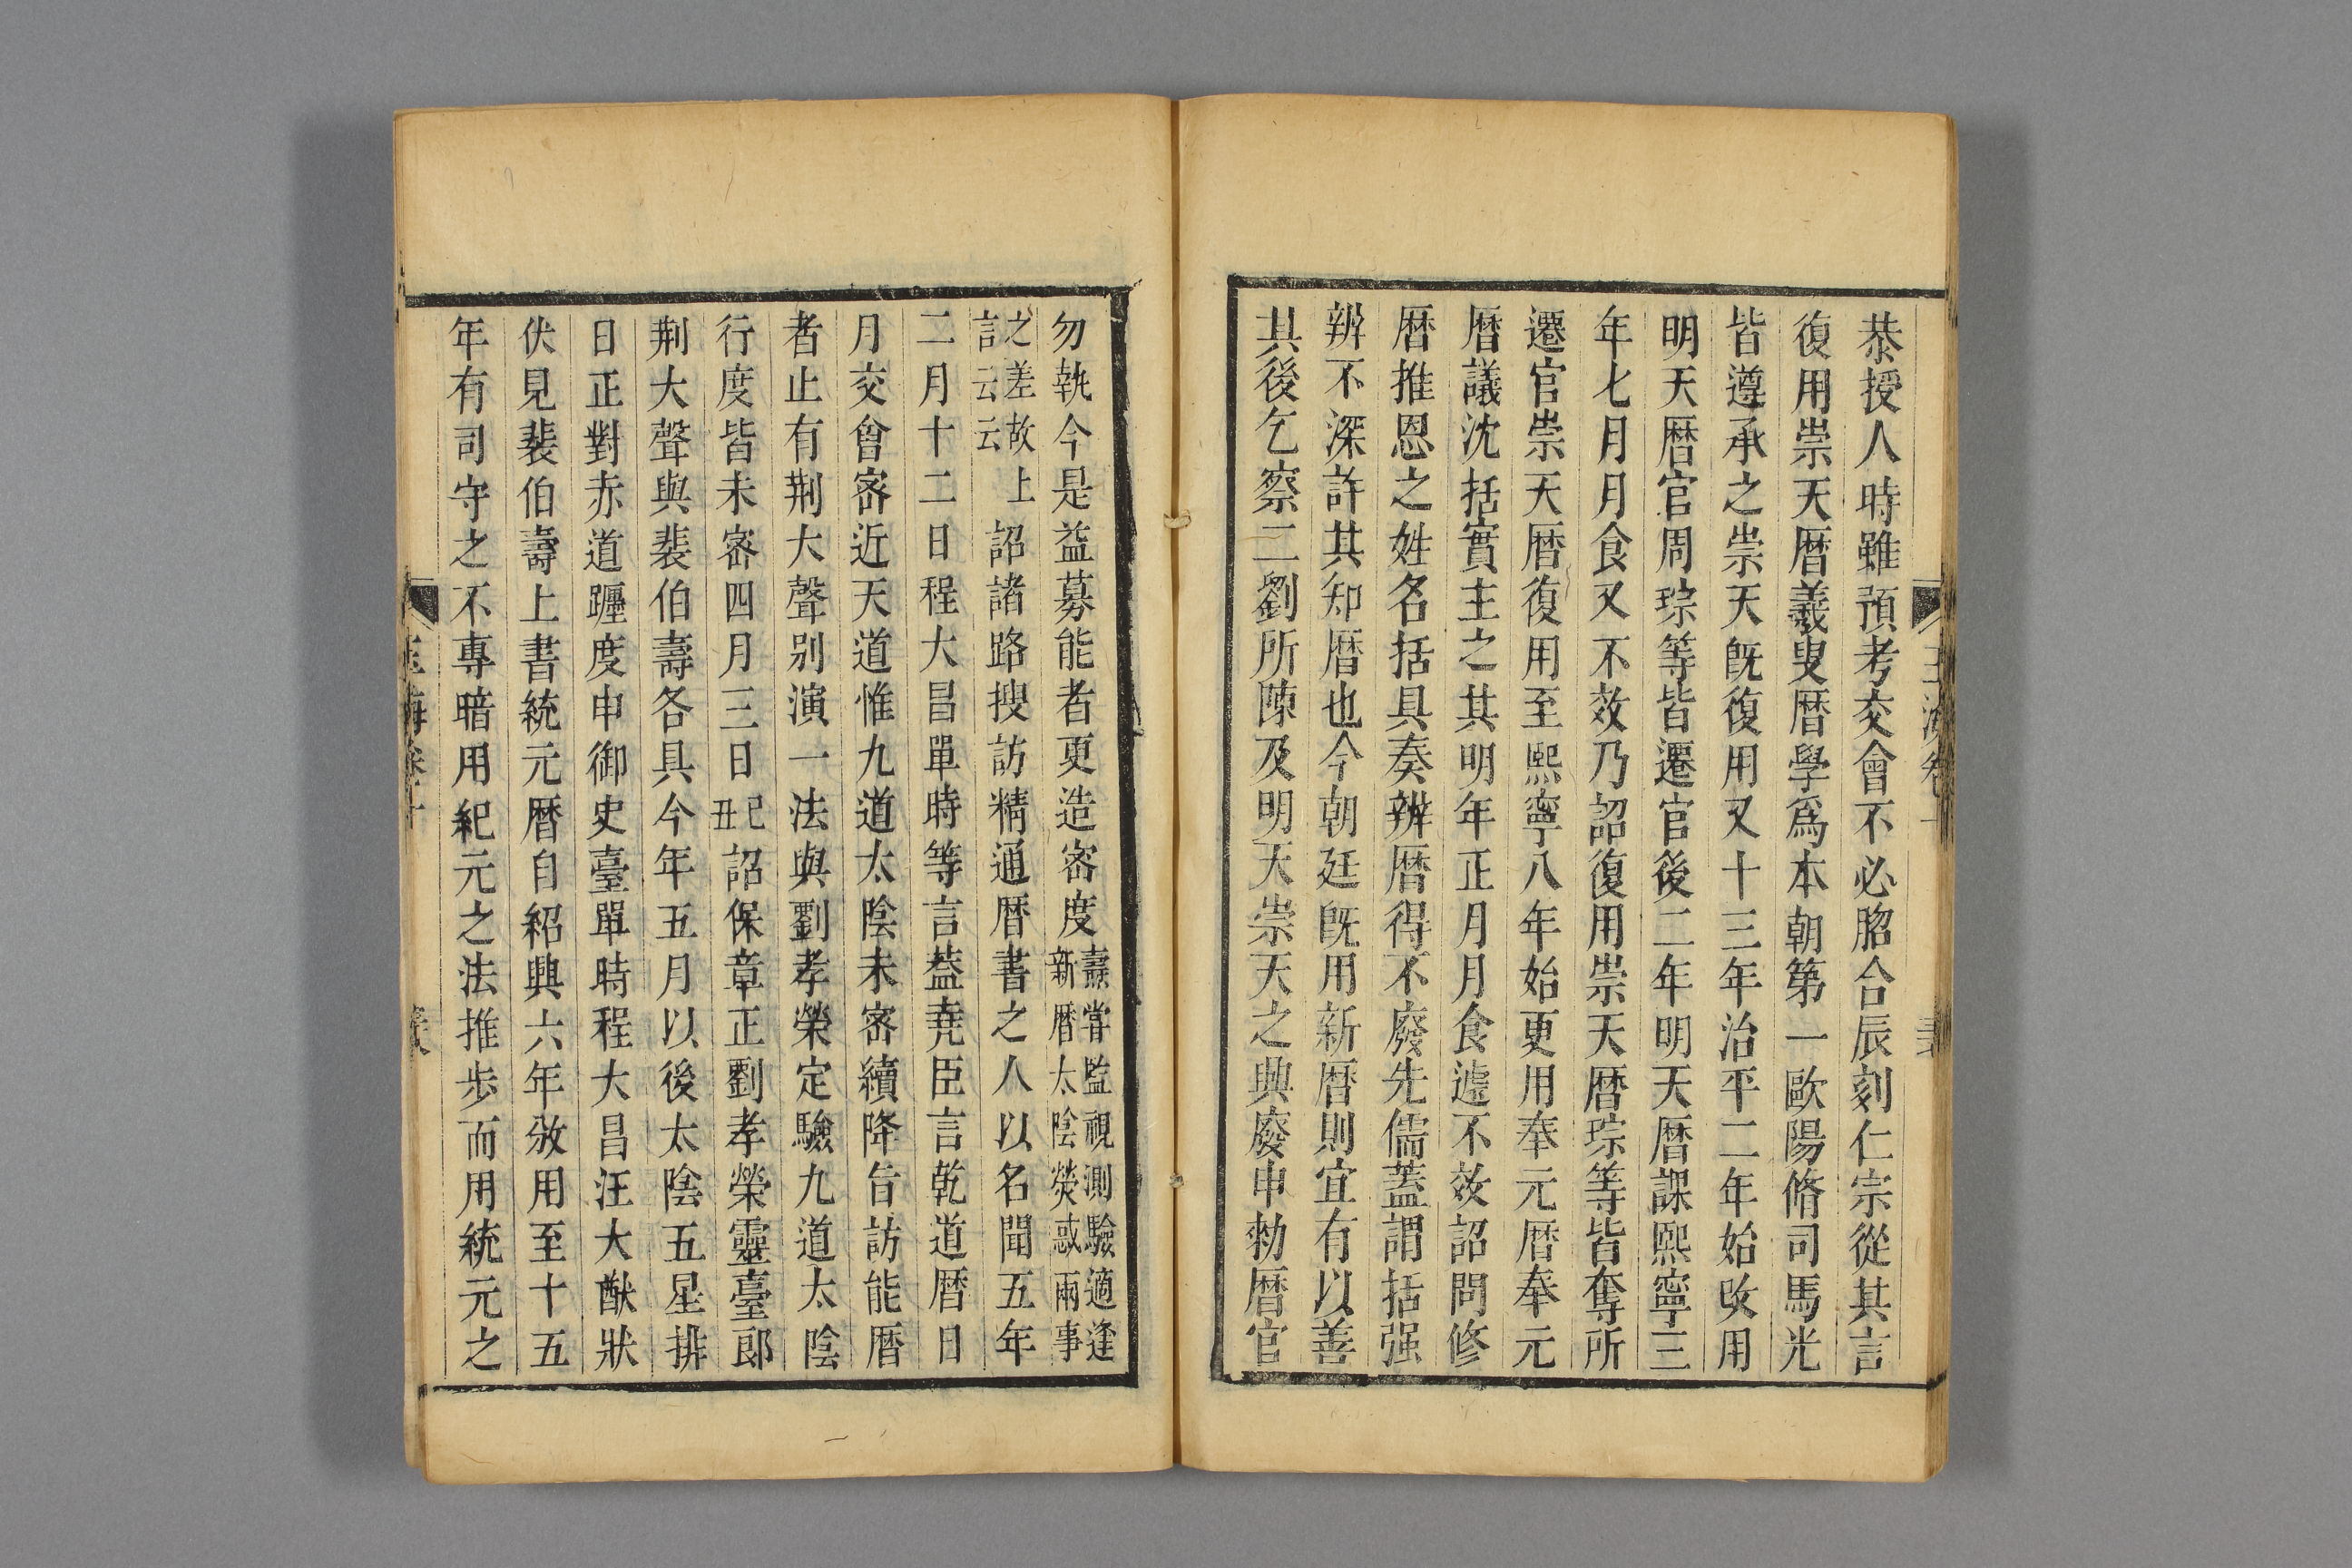 恭授人時雖預考交會不必脗合辰刻仁宗從其言
復用崇天暦羲叟暦學爲本朝第一歐陽脩司馬光
皆遵承之崇天旣復用又十三年治平二年始改用
明天暦官周琮等皆遷官後二年明天暦課熙寧三
年七月月食又不效乃詔復用崇天暦琮等皆奪所
遷官崇天暦復用至熙寧八年始更用奉元暦奉元
暦議沈括實主之其明年正月月食遽不效詔問修
暦推恩之姓名括具奏辨暦得不廢先儒蓋謂括强
辨不深許其知暦也今朝廷旣用新暦則宜有以善
其後乞察二劉所陳及明天崇天之興廢申勑暦官
勿執今是益募能者更造宻度燾嘗監視測驗適逢
新暦太陰熒惑兩事
之差故上
言云云
詔諸路搜訪精通暦書之人以名聞五年
二月十二日程大昌單時等言葢堯臣言乾道暦日
月交會宻近天道惟九道太陰未宻續降旨訪能暦
者止有荆大聲别演一法與劉孝榮定驗九道太陰
行度皆未宻四月三日己丑詔保章正劉孝榮靈臺郎
荆大聲與裴伯壽各具今年五月以後太陰五星排
日正對赤道躔度申御史臺單時程大昌汪大猷狀
伏見裴伯壽上書統元暦自紹興六年攽用至十五
年有司守之不專暗用紀元之法推歩而用統元之